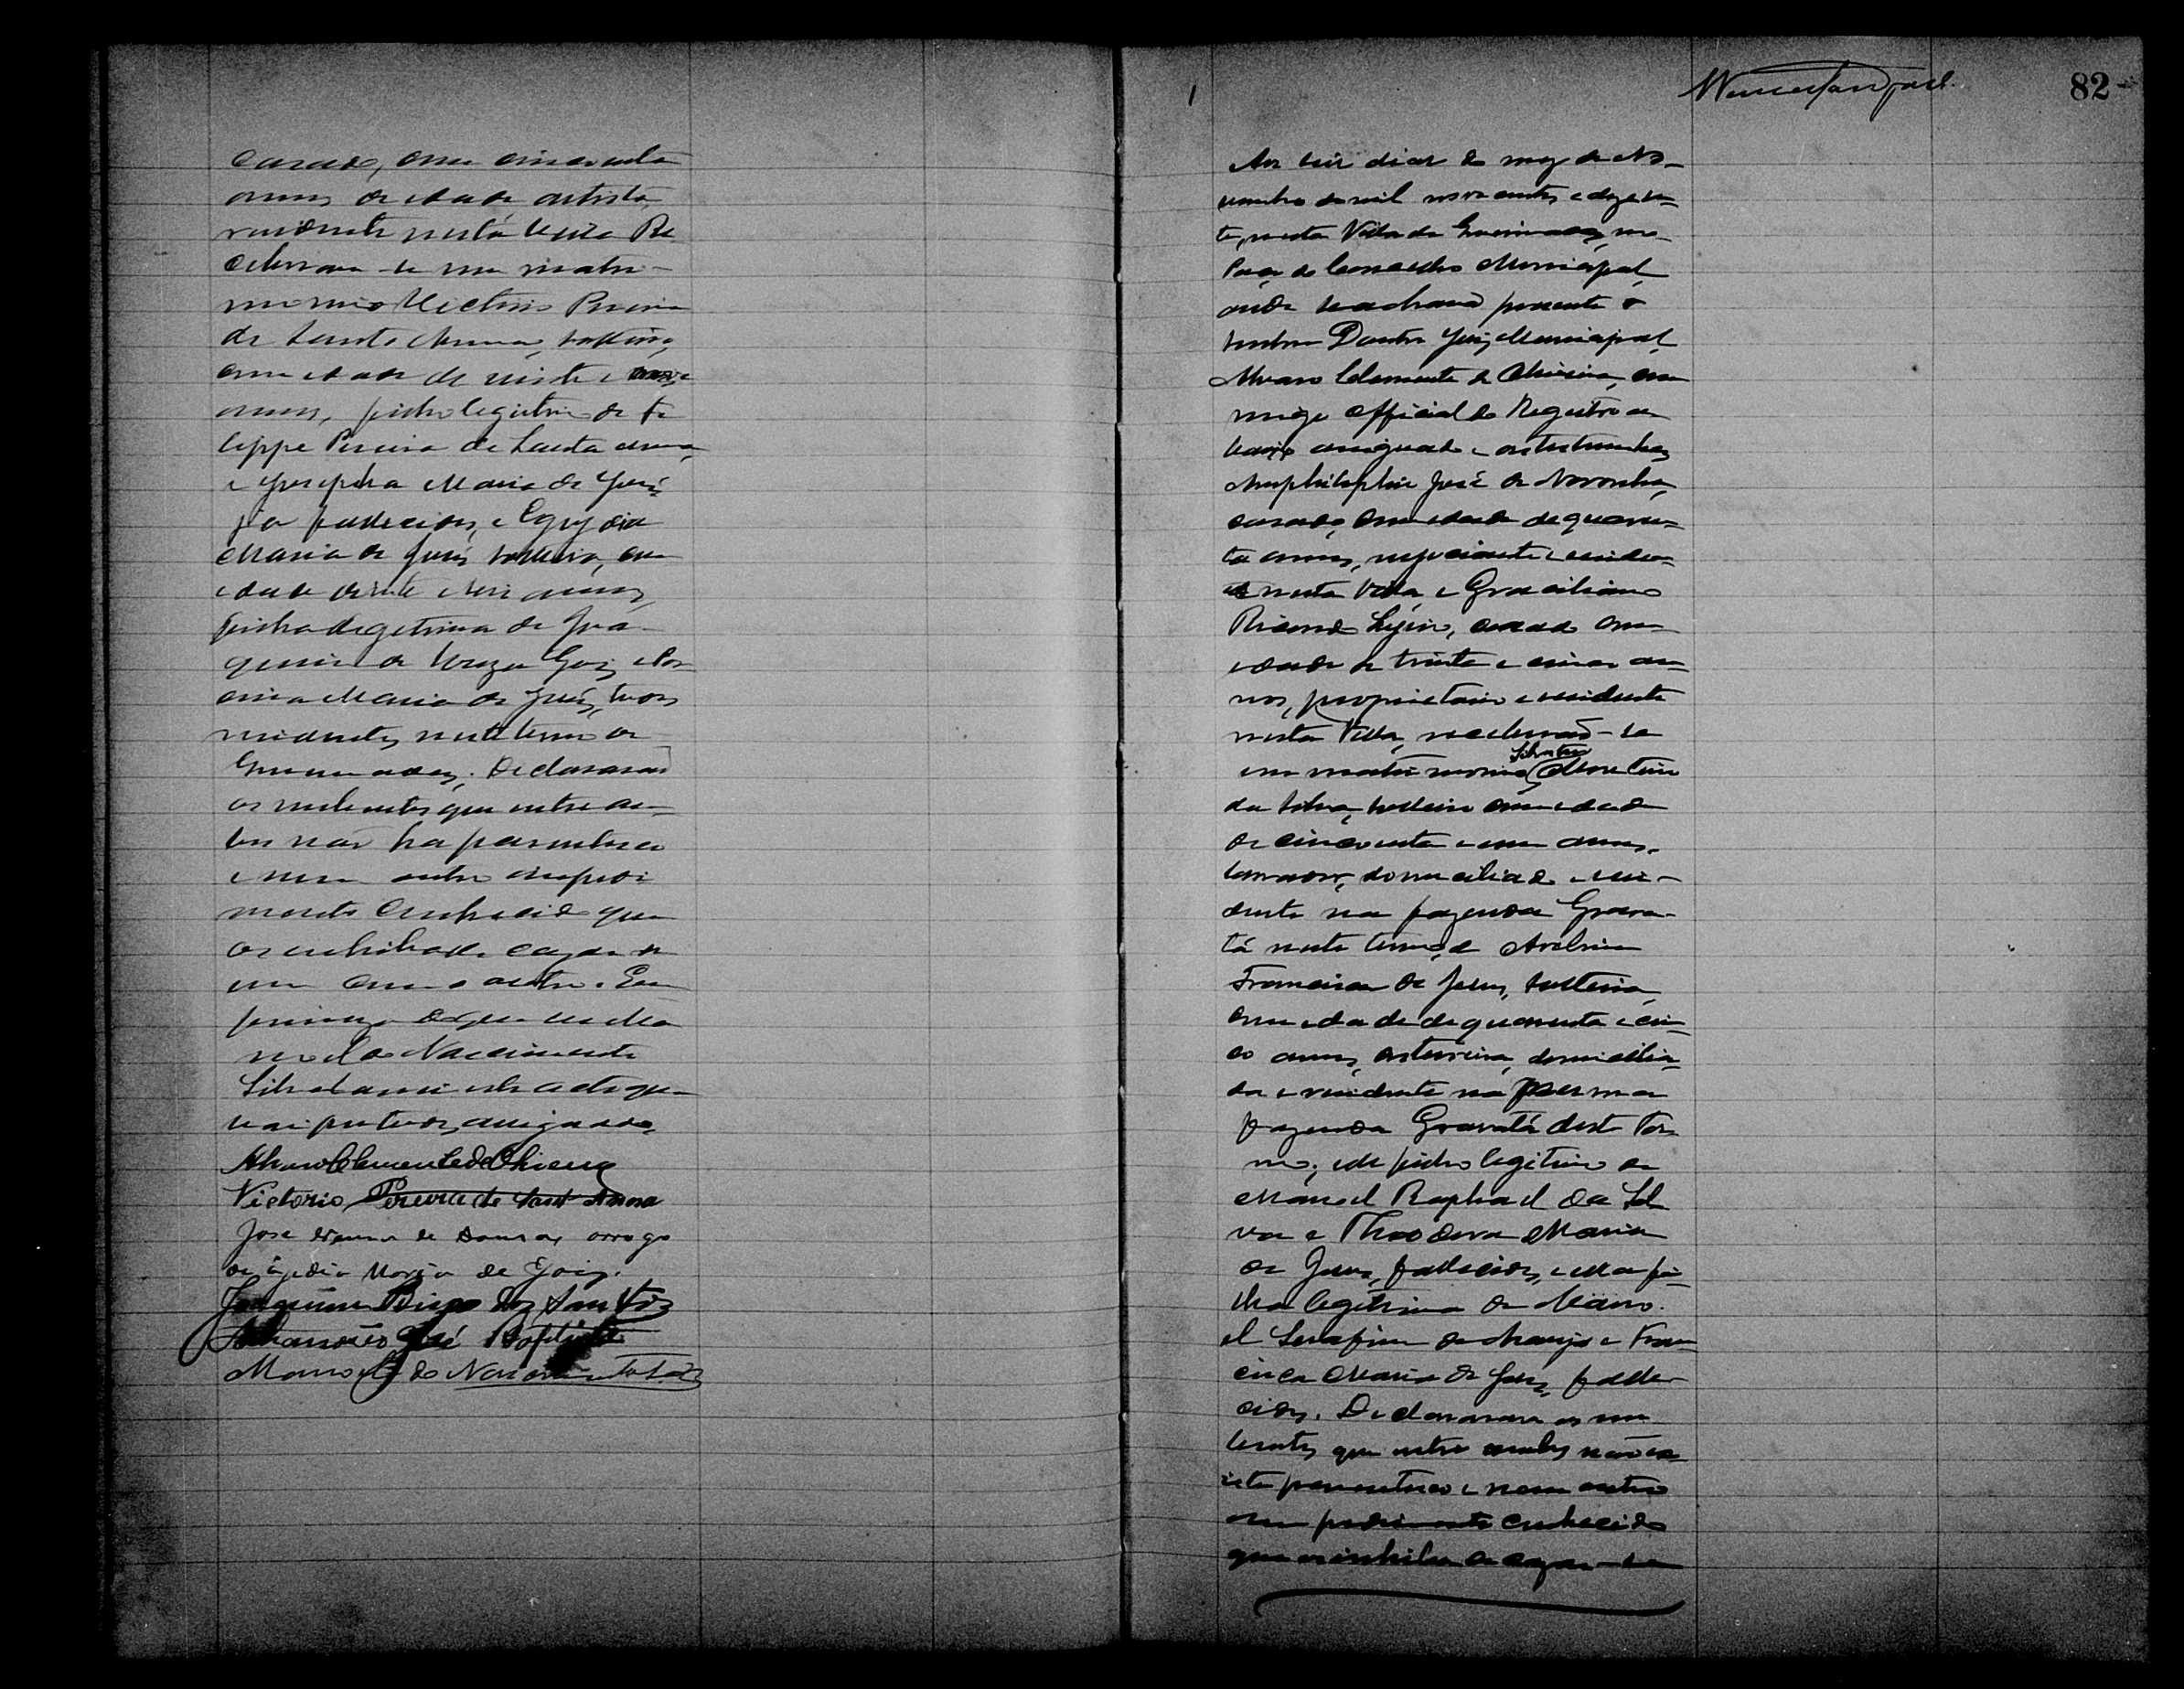 casado, com cincoenta
annos de idade artista,
residente nesta
receberam-se em matri-
monio Victorio Pereira
de Santa Anna, solteiro,
com idade de vinte e
annos, filho legitimo de Fe
lippe Pereira de Santa Anna,
e Josepha Maria de Jesus,
ja fallecidos, e Egydia
Maria de Jesus, solteira, com
idade de vinte e seis annos,
filha legitima de Joa-
quim de Souza Goes e
Maria de Jesus, todos
residentes neste termo de
Queimadas. Declararam
os nubentes que entre am-
bos não ha parentesco
e nem outro impedi
mento conhecido que
os inhiba de cazar-se
um com o outro. Em
firmeza do que eu Ma
noel do Nascimento
Silva lavrei este acto que
vai por todos assignado.
Alvaro Clemente de Oliveira
Victorio Pereira de Sant Anna
José de Souza arrogo
de Egedia Maria de Goes.
Joaquim Bispo dos Santos
José Baptista
Manoel do Nascimento Silva
82
Aos seis dias do mez de No-
vembro de mil novecentos e dezese-
te, nesta Villa de Queimadas, no
Paço do Conselho Municipal,
onde se achava presente o
senhor Doutor Juiz Municipal,
Alvaro Clemente de Oliveira, com
migo official do Registro a-
baixo assignado e as testemunhas
Amphilophio José de Noronha,
casado, com idade de quaren-
ta annos, negociante e residen-
te nesta Villa, e Graciliano
Rizerio, casado com
idade de trinta e cinco an-
nos, proprietario e residente
nesta Villa, receberão-se
em matrimonio Silvestre
da Silva, solteiro com idade
de cincoenta e um annos,
lavrador, domiciliado e resi-
dente na fazenda Grava-
tá neste termo, e Avelina
Francisca de Jesus, solteira,
com idade de quarenta e cin-
co annos, costureira, domicilia-
da e residente na mesma
fazenda Gravatá deste Ter
mo; elle filho legitimo de
Manoel Raphael da Sil
va e Theodora Maria
de Jesus, fallecidos, e ella fi-
lha legitima de Mano-
el Serafim de Araujo e Fran
cisca Maria de Jesus, falle-
cidos. Declararam os nu-
bentes que entre ambos não ex
iste parentesco e nem outro
impedimento conhecido
que os inhiba de cazar-se